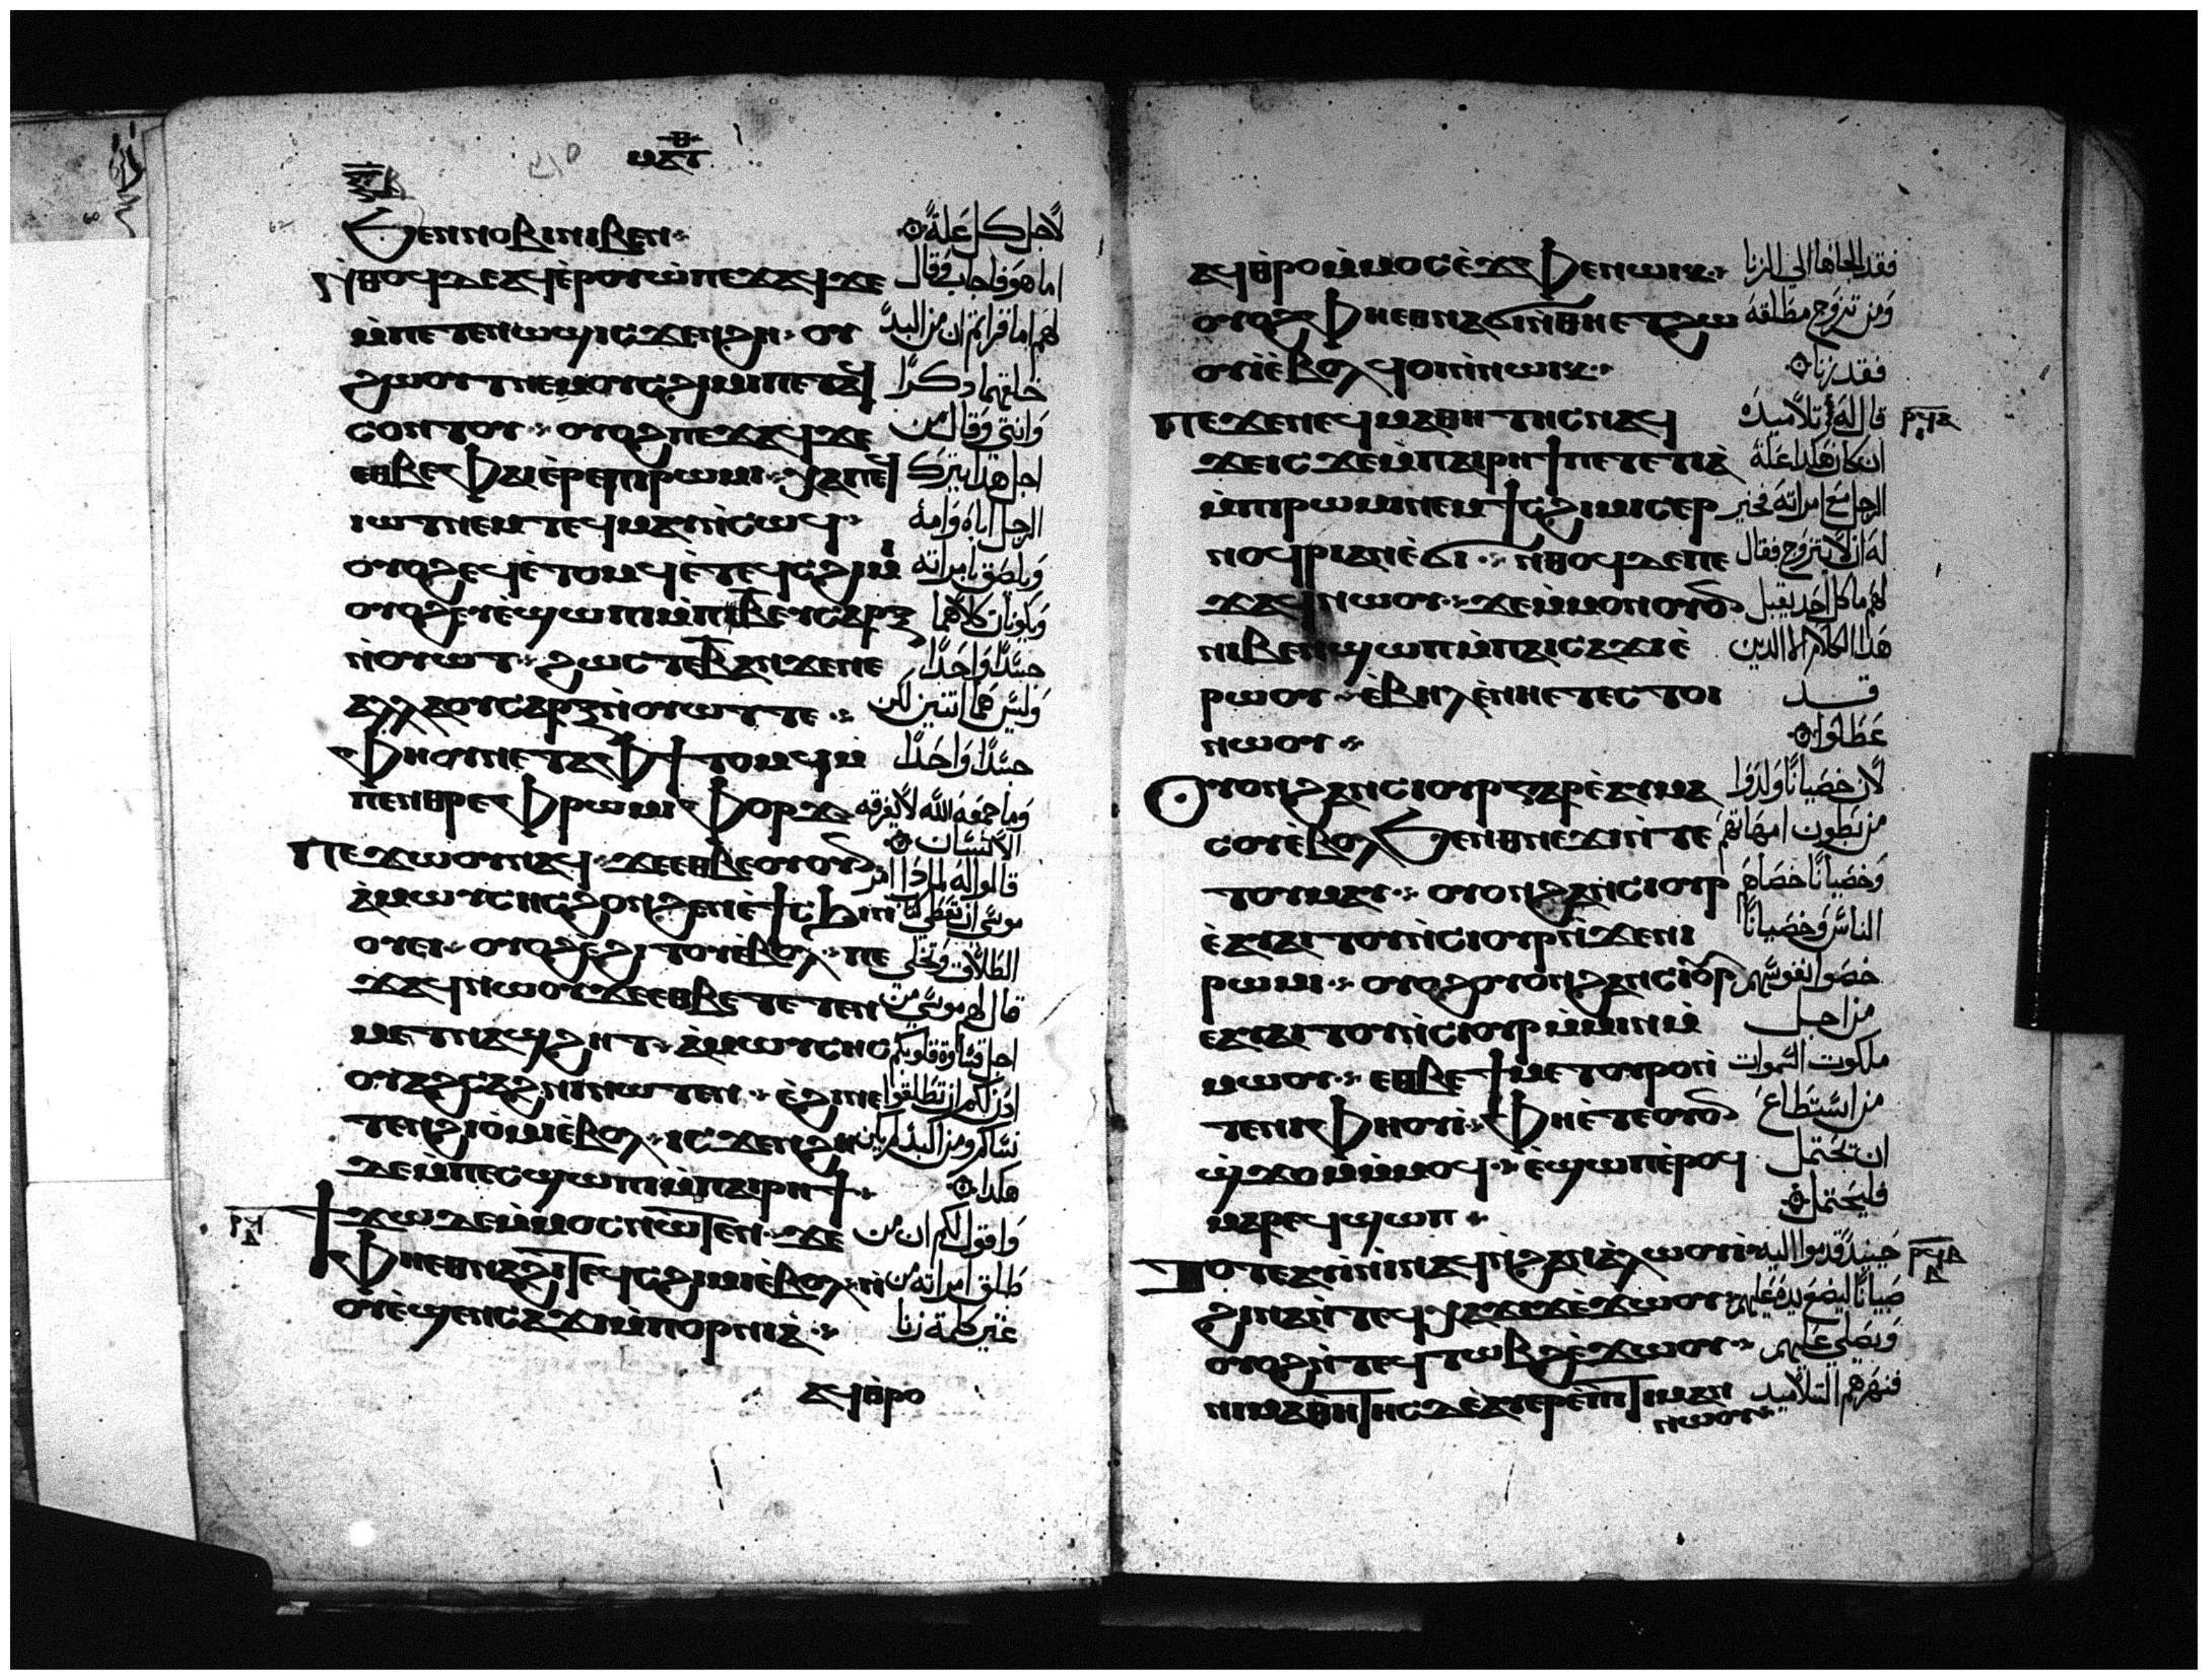 ⲙⲁⲧⲑ
ⲝⲃ
Ϧⲉⲛⲛⲟⲃⲓⲛⲓⲃⲉⲛ⁘ لاجل كل علة
ⲛ̀ⲑⲟϥⲇⲉⲁϥⲉ̀ⲣⲟⲩⲱ̀ⲡⲉϫⲁϥϫⲉ اما هو فاجاب وقال
ⲙ̀ⲡⲉⲧⲉⲛⲱϣⲓⲥϫⲉⲛϩⲏ⁘ ⲟⲩ لهم اما قراتم ان من البدء
ϩⲱⲟⲩⲧⲛⲉⲙⲟⲩⲥϩⲓⲙⲓⲡⲉⲧⲁϥ خلقهما ذكرًا
ⲥⲟⲛⲧⲟⲩ⁘ ⲟⲩⲟϩⲡⲉϫⲁϥϫⲉ وانثى وقال من
ⲉⲑⲃⲉⲫⲁⲓⲉ̀ⲣⲉⲡⲓⲣⲱⲙⲓ⁘ ⲭⲁⲡⲉϥ اجل هذا يترك
ⲓⲱⲧⲛⲉⲙⲧⲉϥⲙⲁⲩⲛ̀ⲥⲱϥ⁘ الرجل اباه وامه
ⲟⲩⲟϩⲉϥⲉ̀ⲧⲟⲙϥⲉ̀ⲧⲉϥⲥϩⲓⲙⲓ ويلصق بامراته
ⲟⲩⲟϩⲉⲩⲉ̀ϣⲱⲡⲓⲙ̀ⲡⲓⲃⲉⲩⲥⲁⲣⲝ ويكونان كلاهما
ⲛ̀ⲟⲩⲱⲧ⁘ ϩⲱⲥⲧⲉⲃⲁⲛϫⲉⲛⲉ جسدًا واحدًا
ⲁⲗⲗⲁⲟⲩⲥⲁⲣⲝⲛ̀ⲟⲩⲱⲧⲧⲉ⁘ وليس هما اثنين لكن
ⲫⲏⲟⲩⲛⲉⲧⲁⲫϯⲧⲟⲙϥⲙ̀ جسدًا واحدًا
ⲡⲉⲛⲑⲣⲉⲫⲣⲱⲙⲓⲫⲟⲣϫϥ وما جمعه الله لا يفرقه
الانسان
Ⲡⲉϫⲱⲟⲩⲛⲁϥ⁘ ϫⲉⲉⲑⲃⲉⲟⲩⲟⲩⲛ قالوا له لماذا امر
ⲁ̀ⲙⲱⲩⲥⲏⲥϩⲟⲛϩⲉⲛⲉ̀ϯⲥϧⲓⲛ موسى ان تعطى
ⲟⲩⲉⲓ⁘ ⲟⲩⲟϩⲉϩⲓⲧⲟⲩⲉ̀ⲃⲟⲗ⁘ ⲡⲉ الطلاق وتخلى
ϫⲁϥⲛⲱⲟⲩϫⲉⲉⲑⲃⲉⲧⲉⲧⲉⲛ قال لهم موسى من
ⲙⲉⲧⲛⲁϣⲧϩⲏⲧ⁘ ⲁ̀ⲙⲱⲩⲥⲏⲥ اجل قساوة قلوبكم
ⲟⲩⲁϩⲥⲁϩⲛⲓⲛⲱⲧⲉⲛ⁘ ⲉ̀ϩⲓⲛⲉ اذن لكم ان تطلقوا
ⲧⲉⲛϩⲓⲟ̀ⲙⲓⲉ̀ⲃⲟⲗ⁘ ⲓⲥϫⲉⲛϩⲏ نساكم ومن البدء لم يكن
ⲇⲉⲙ̀ⲡⲉⲥϣⲱⲡⲓⲙ̀ⲡⲁⲓⲣⲏϯ⁘ هكذا
Ϯϫⲱⲇⲉⲙ̀ⲙⲟⲥⲛⲱⲧⲉⲛ⁘ ϫⲉ واقول لكم ان من
ⲫⲏⲉⲑⲛⲁϩⲓⲧⲉϥⲥϩⲓⲙⲓⲉ̀ⲃⲟⲗ⁘ ⲛ̀ طلق امراته من
ⲟⲩⲉ̀ϣⲉⲛⲥⲁϫⲓⲙ̀ⲡⲟⲣⲛⲓⲁ̀⁘ غير كلمة زنا
ⲁϥⲑⲣⲟ
ⲁϥⲑ̀ⲣⲟⲙ̀ⲙⲟⲥⲉ̀ⲁⲫⲉⲛⲱⲓⲕ⁘ فقد الجاها الى الزنا
ⲟⲩⲟϩⲫⲏⲉⲑⲛⲁϭⲓⲛ̀ⲑⲏⲉⲧϩⲱ ومن تزوج مطلقة
ⲟⲩⲓ̀ⲉ̀ⲃⲟⲗϥⲟⲓⲛ̀ⲛⲱⲓⲕ⁘ فقد زنا
Ⲡⲉϫⲉⲛⲉϥⲙⲁⲑⲏⲧⲏⲥⲛⲁϥ قال له تلاميذه ⲣϥⲁ
ϫⲉⲓⲥϫⲉⲙ̀ⲡⲁⲓⲣⲏϯⲡⲉⲧⲉⲧⲓⲁ̀ ان كان هكذا علة
ⲙ̀ⲡⲓⲣⲱⲙⲓⲛⲉⲙϯⲥϩⲓⲙⲓⲥⲉⲣ الرجل مع امراته فخير
ⲛⲟϥⲣⲓⲁⲛⲉ̀ϭⲓ⁘ ⲛ̀ⲑⲟϥⲇⲉⲡⲉ له ان لا يتزوج فقال
ϫⲁϥⲛⲱⲟⲩ⁘ ϫⲉⲙ̀ⲙⲟⲛⲟⲩⲟⲛ لهم ما كل احد يقبل
ⲛⲓⲃⲉⲛϣⲱⲡⲙ̀ⲡⲁⲓⲥⲁϫⲓⲉ̀ هذا الكلام الا الذين
ⲣⲱⲟⲩ⁘ ⲉ̀ⲃⲏⲗⲉ̀ⲛⲏⲉⲧⲉⲥⲧⲟⲓ قد
ⲛⲱⲟⲩ⁘ عطوا
Ⲟⲩⲟⲛϩⲁⲛⲥⲓⲟⲩⲣⲅⲁⲣⲉ̀ⲁⲩⲙⲁ لان خصيانًا ولدوا
ⲥⲟⲩⲉ̀ⲃⲟⲗϦⲉⲛⲑⲛⲉϫⲓⲛ̀ⲧⲉ من بطون امهاتهم
ⲧⲟⲩⲙⲁⲩ⁘ ⲟⲩⲟⲛϩⲁⲛⲥⲓⲟⲩⲣ وخصيانًا خصاهم
ⲉ̀ⲁⲩⲁⲓⲧⲟⲩⲛ̀ⲥⲓⲟⲩⲣⲛ̀ϫⲉⲛⲓ الناس وخصيانًا
ⲣⲱⲙⲓ⁘ ⲟⲩⲟϩⲟⲩⲟⲛϩⲁⲛⲥⲓⲟⲩⲣ خصوا نفوسهم
ⲉⲁⲩⲁⲓⲧⲟⲩⲛ̀ⲥⲓⲟⲩⲣⲙ̀ⲙⲓⲛⲙ̀ من اجل
ⲙⲱⲟⲩ⁘ ⲉⲑⲃⲉϯⲙⲉⲧⲟⲩⲣⲟⲛ̀ ملكوت السموات
ⲧⲉⲛⲓⲫⲏⲟⲩⲓ̀⁘ ⲫⲏⲉ̀ⲧⲉⲟⲩⲟⲛ من استطاع
ϣ̀ϫⲟⲙⲙ̀ⲙⲟϥ⁘ ⲉ̀ϣⲱⲡⲉ̀ⲣⲟϥ ان يحتمل
ⲙⲁⲣⲉϥϣⲱⲡ⁘ فليحتمل
Ⲧⲟⲧⲉⲁⲩⲓ̀ⲛⲓⲛⲁϥⲛ̀ϩⲁⲛⲁ̀ⲗⲱⲟⲩⲓ̀⁘ حينيذ قدموا اليه ⲣϥⲃ
ϩⲓⲛⲁⲛ̀ⲧⲉϥⲭⲁϫⲓϫⲉ̀ϫⲱⲟⲩ⁘ صبيانًا ليضع يده عليهم
ⲟⲩⲟϩⲛ̀ⲧⲉϥⲧⲱⲃϩⲉ̀ϫⲱⲟⲩ⁘ ويصلى عليهم
ⲛⲓⲙⲁⲑⲏⲧⲏⲥⲇⲉⲁⲩⲉⲣⲉ̀ⲡⲓⲧⲓⲙⲁⲛ فنهرهم التلاميذ
ⲛⲱⲟⲩ⁘